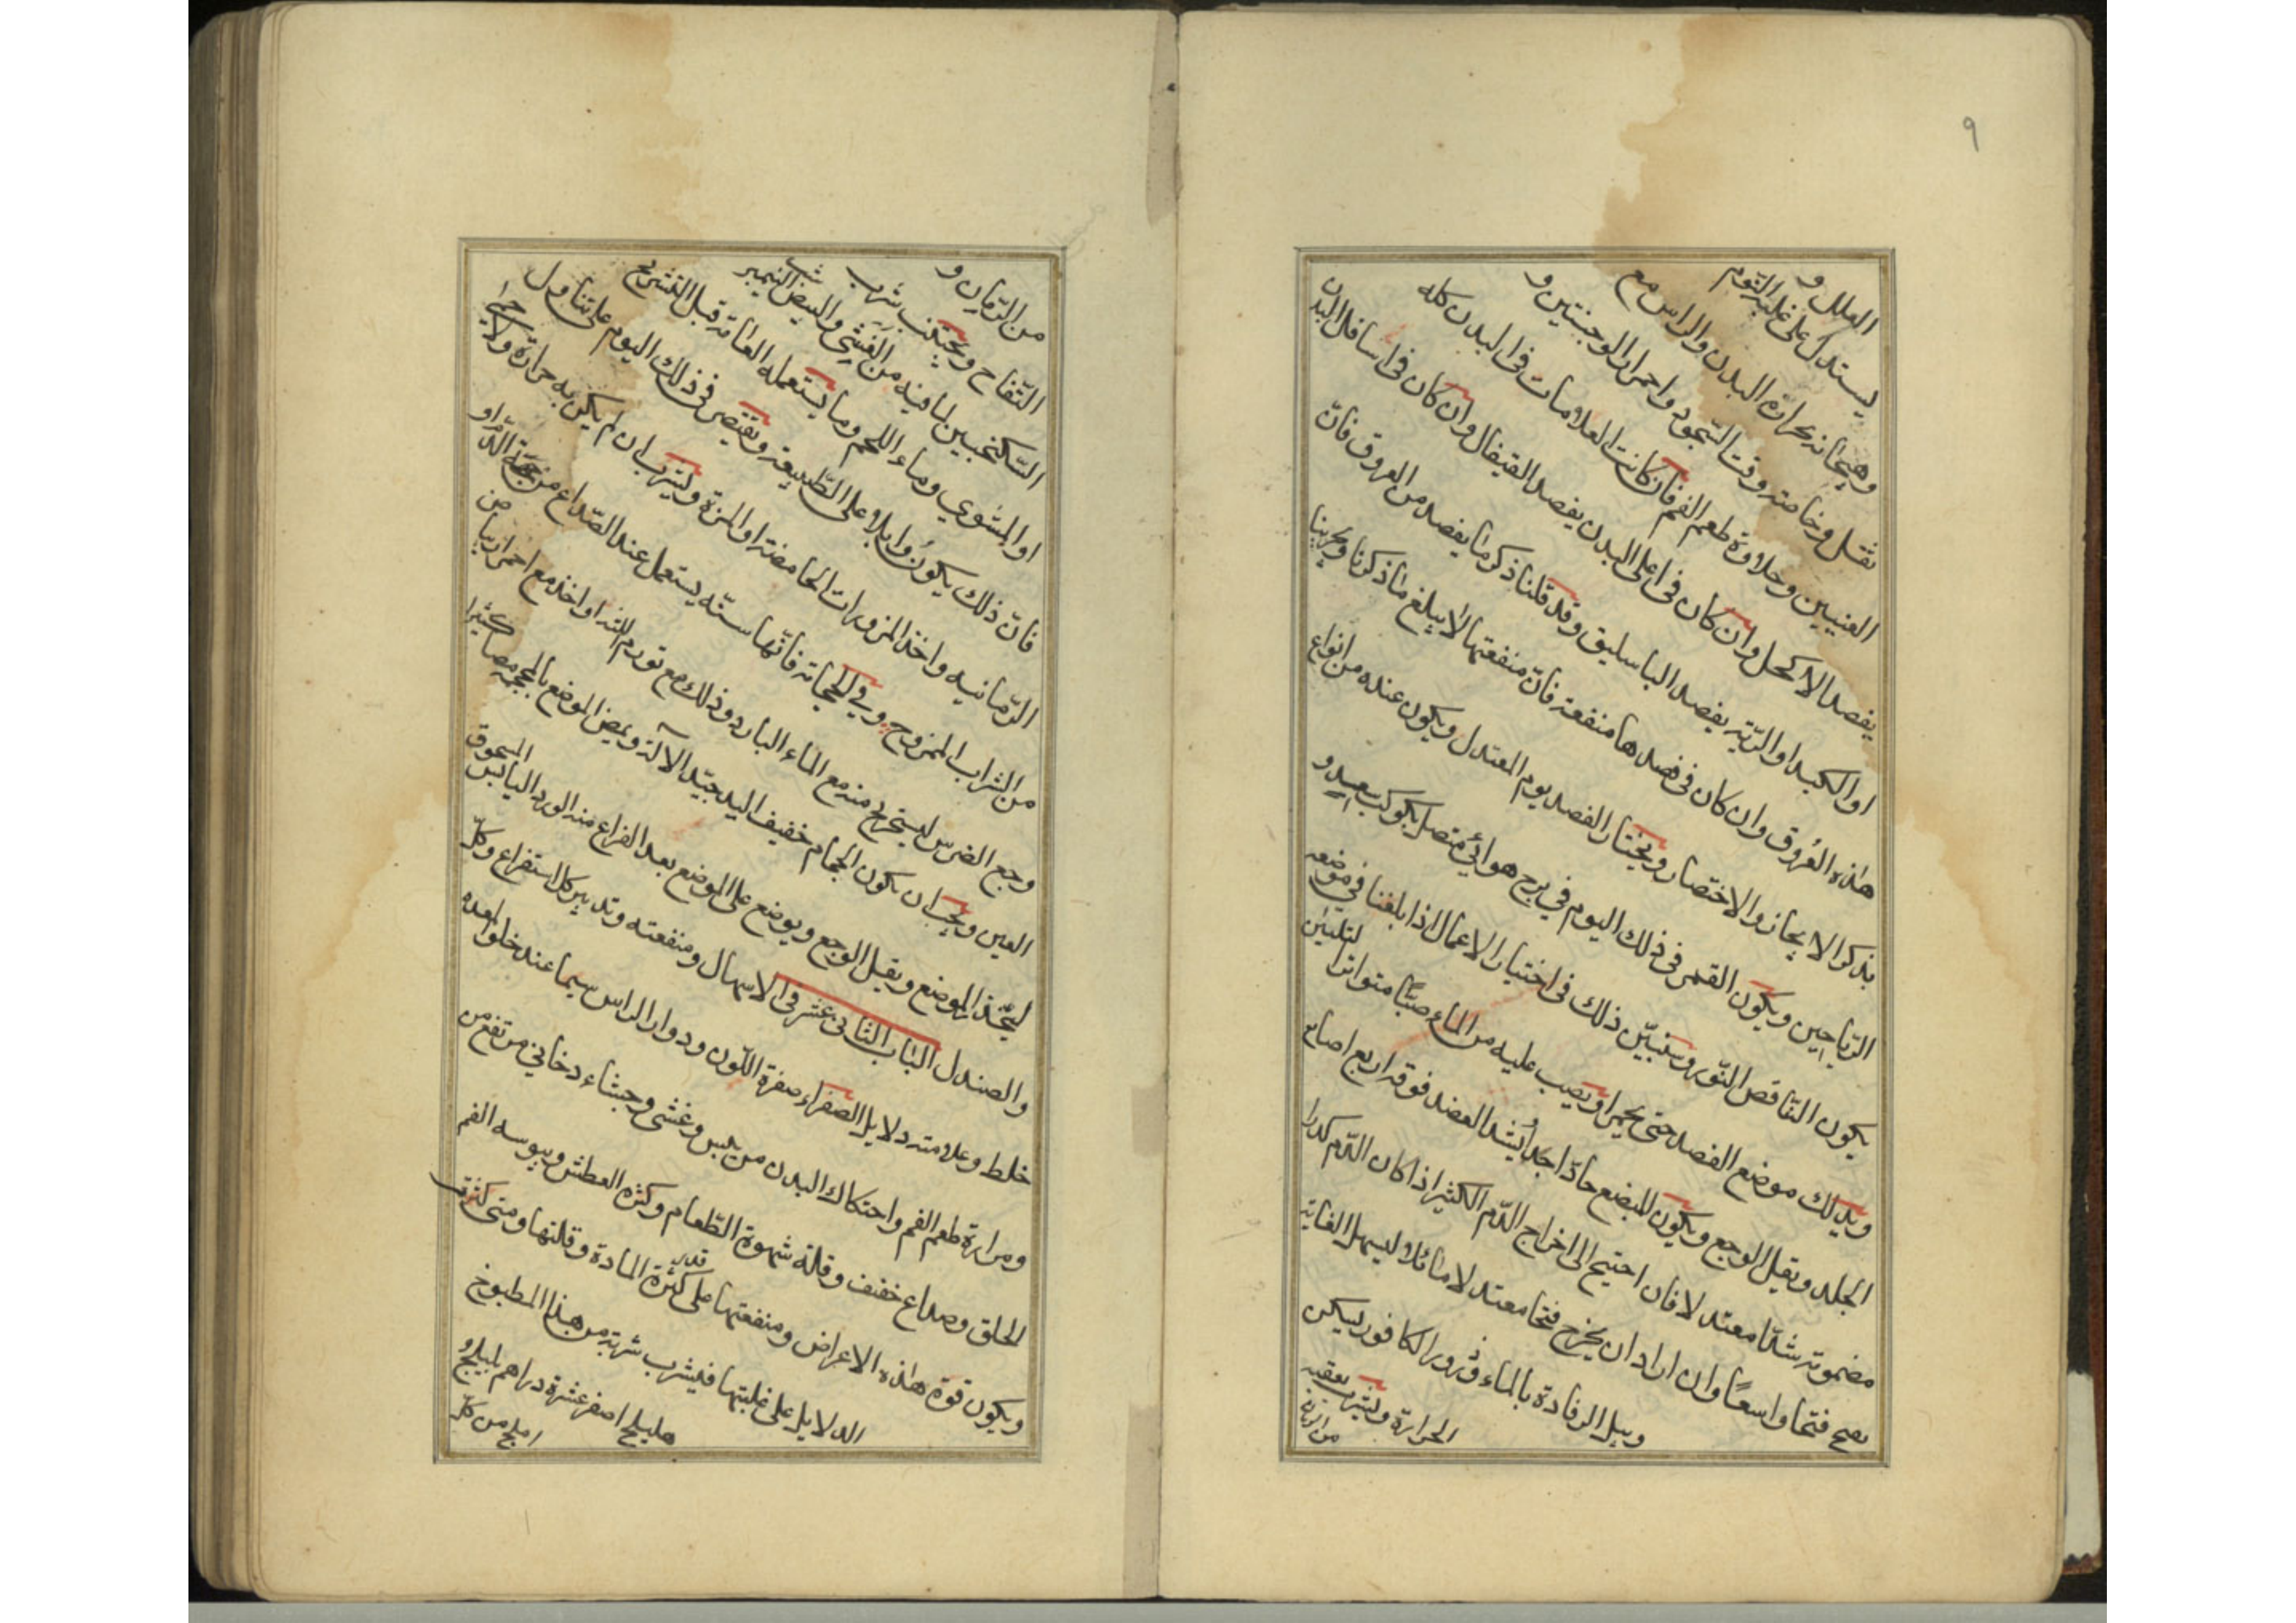 ٩
العلل و
يستدل على غلبة الدّم
وهيجانه بحرارة البدن والراس مع
ثقل وخاصته وقت السّجود واحمرار الوجنتين و
العينين وحلاوة طعم الفم فان كانت العلامات فى البدن كله
يفصد الاكحل وان كان فى اعلى البدن يفصد القيفال وان كان فى اسافل البدن
او الكبد او الرّية يفصد الباسليق وقد قلنا ذكر ما يفصد من العروق فانّ
هذه العُروق وان كان فى فصدها منفعة فانّ منفعتها لا يبلغ ما ذكرنا وجرينا
بذكر الايجاز والاختصار ويختار الفصد يوم المعتدل ويكون عنده من انواع
الرّياحين ويكون القمر فى ذلك اليوم في برج هوائي متصل بكوكب سعيد و
يكون النّاقص النّور وسنبيّن ذلك فى اختيار الاعمال اذا بلغنا في موضعه
ويدلك موضع الفصد حتى يحمر او يصب عليه من الماء صبًّا متواترا لتليّن
الجلد ويقيل الوجع ويكون المبضع حادّا جدا يُشد العضد فوقه اربع اصابع
مضمومة شدّا معتدلا فان احتيج الى اخراج الدّم الكثير اذا كان الدّم كدرا
يفتح فتحا واسعًا وان اراد ان يخرج فتحا معتدلا مائلا ليسهل الغاية
ويبل الرفادة بالماء وذرور الكافور ليسكن
الحرارة ويشرب بعقبه
من الرمان
من الرّمان و
التّفاح ويجتنب شرب
السّكنجبين لما فيه من الغَشِي والبيض النيمبرشت
او المشوي وماء اللحم وما يستعمله العامّة قبل التشريح
فانّ ذلك يكونُ وابلا على الطّبيعة ويقتصر فى ذلك اليوم على تناول
الرّمانيه واخذ المزورات الحامضة او المزة وليشرب ان لم يكن به حرارة ولا حمى
من الشراب الممزوج وفي الحجامة فانّها سنّه يستعمل عند الصّداع من جهة الدّم او
وجع الضرس ليستخرج منه مع الماء البارد وذلك مع تورم اللثه او اخذ مع احمرار بياض
العين ويجب ان يكون الحجام خفيف اليد جيّد الآلة ويمص الموضع بالمحجمة مصا كثيرا
ليخدّر الموضع ويقيل الوجع ويوضع على الموضع بعد الفراغ منه الورد اليابس المسحوق
والصندل الباب الثانى عشر فى الاسهال ومنفعته وتدبير كل استفراغ وكلّ
خلط وعلامته دلايل الصّفراء صفرة اللّون ودوار الراس سيما عند خلو المعده
ومرارة طعم الفم واحتكاك البدن من يبس وغشى وجشاء دخاني مرتفع من
الحلق وصداع خفيف وقلة شهوة الطّعام وكثرة العطش ويبوسه الفم
ويكون قوة هذه الاعراض ومنفعتها على قدر كثرة المادة وقلتها ومتى كثرت
الدلايل على غلبتها فليشرب شربة من هذا المطبوخ
هليلج اصفر عشرة دراهم بليلج و
املج من كلّ